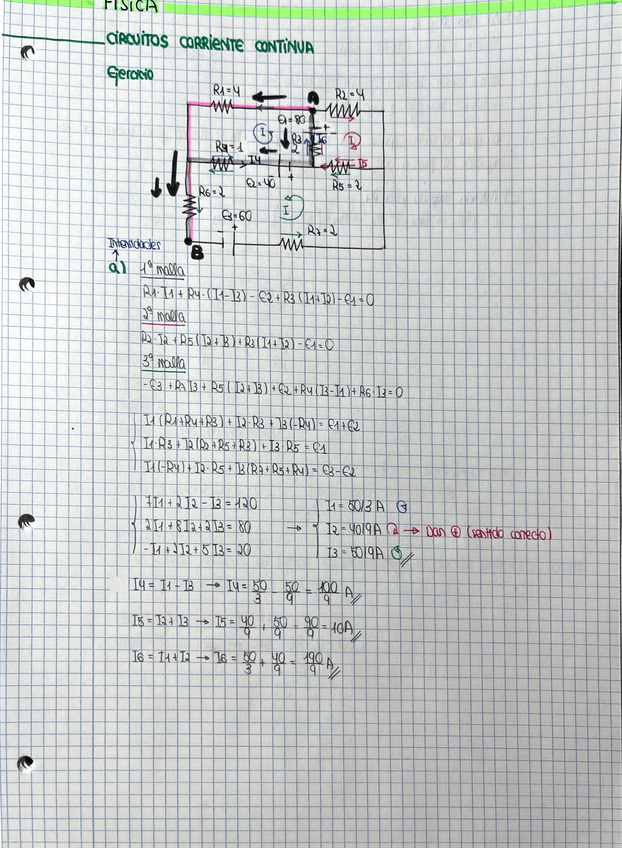 FÍSICA
CIRCUITOS CORRIENTE CONTINUA
Ejercicio
R1=4 A R2=4
ε1=80
R3 2 I6
R4=1 I4 I I I5
ε2=40 R5=2
R6=2
ε3=60 I R7=2
B
Intensidades
a) 1ª malla
R1·I1 + R4·(I1-I3) - ε2 + R3(I1+I2) - ε1 = 0
2ª malla
R2·I2 + R5(I2+I3) + R3(I1+I2) - ε1 = 0
3ª malla
-ε3 + R7I3 + R5(I2+I3) + ε2 + R4(I3-I1) + R6·I3 = 0
I1(R1+R4+R3) + I2·R3 + I3(-R4) = ε1+ε2
I1·R3 + I2(R2+R5+R3) + I3·R5 = ε1
I1(-R4) + I2·R5 + I3(R7+R5+R4) = ε3-ε2
7I1 + 2I2 - I3 = 120 I1 = 50/3 A
2I1 + 8I2 + 2I3 = 80 → I2 = 40/9 A → Dan ⊕ (sentido correcto)
-I1 + 2I2 + 5I3 = 20 I3 = 50/9 A
I4 = I1 - I3 → I4 = 50/3 - 50/9 = 100/9 A
I5 = I2 + I3 → I5 = 40/9 + 50/9 = 90/9 = 10A
I6 = I1 + I2 → I6 = 50/3 + 40/9 = 190/9 A